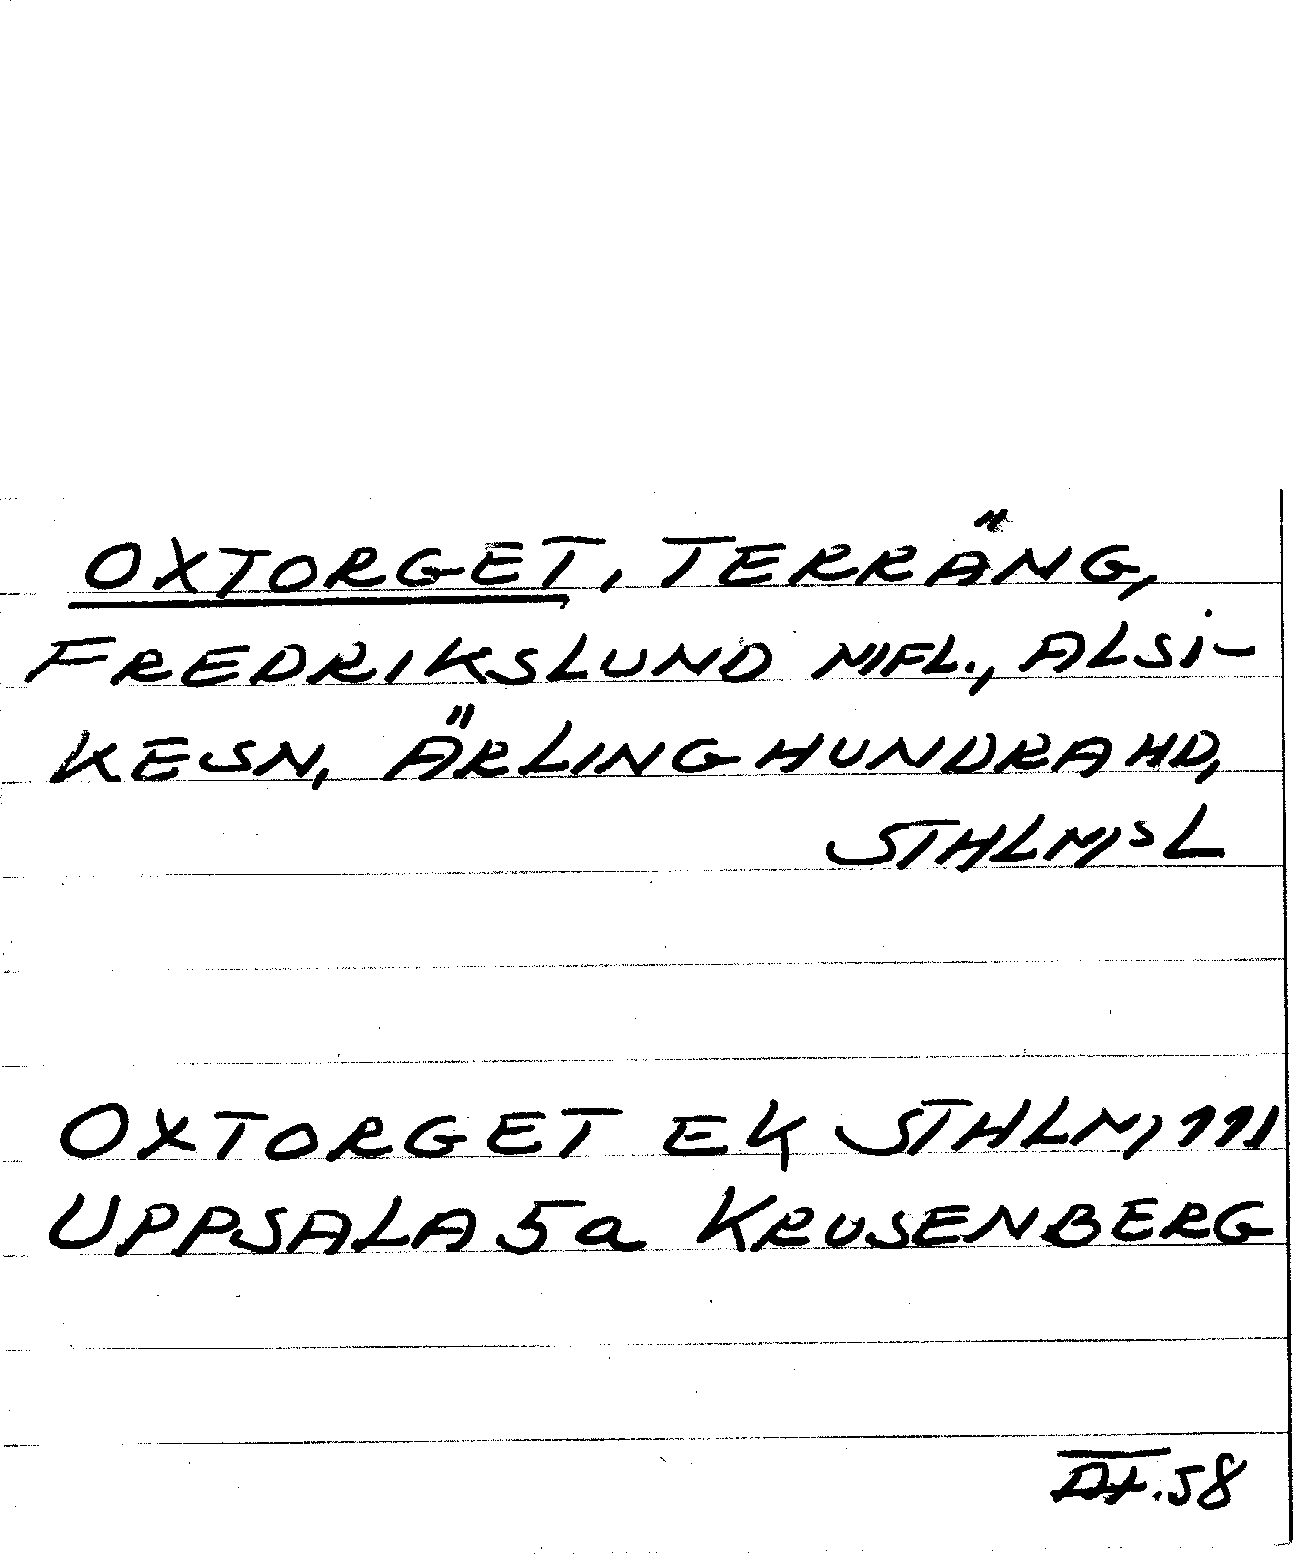 OXTORGET, TERRÄNG,
FREDRIKSLUND MFL., ALSI-
KE SN, ÄRLINGHUNDRA HD,
STHLMS L
OXTORGET EK STHLM 111
UPPSALA 5a KRUSENBERG
58